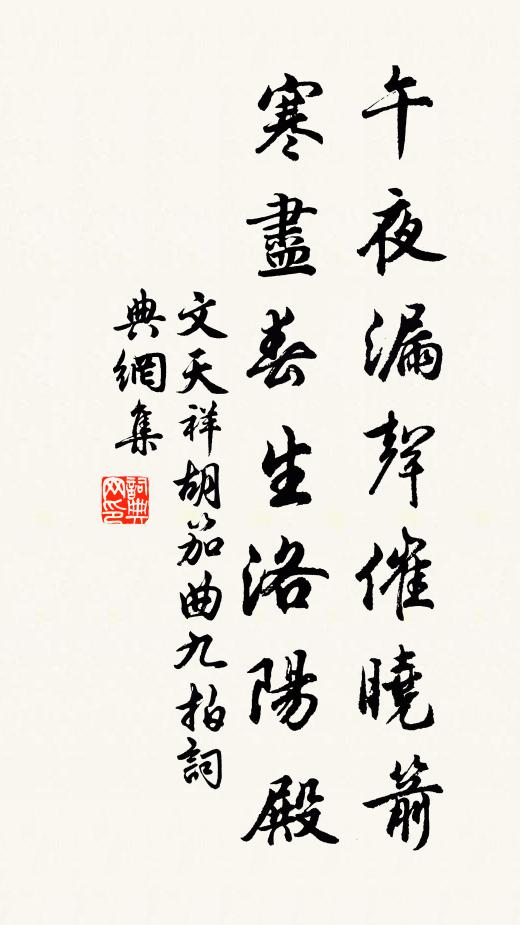 午夜漏聲催曉箭
寒盡春生洛陽殿
文天祥胡笳曲九拍詞
典網集
詞典网印